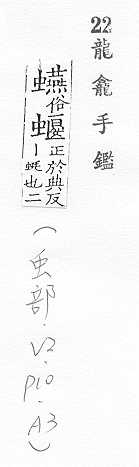 22 龍龕手鑑
俗蝘正於典反｜蜓也二
(虫部.V2.p10.A3)